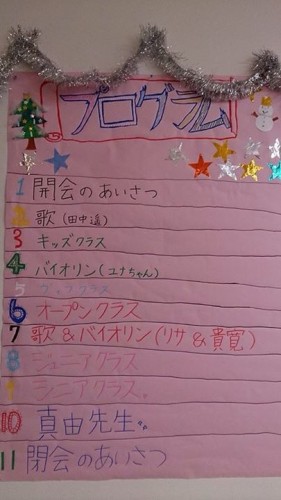 プログラム
1 開会のあいさつ
2 歌(田中遥)
3 キッズクラス
4 バイオリン(ユナちゃん)
5 クラス
6 オープンクラス
7 歌&バイオリン(リサ&貴寛)
8 ジュニアクラス
9 シニアクラス。
10 真由先生
11 閉会のあいさつ